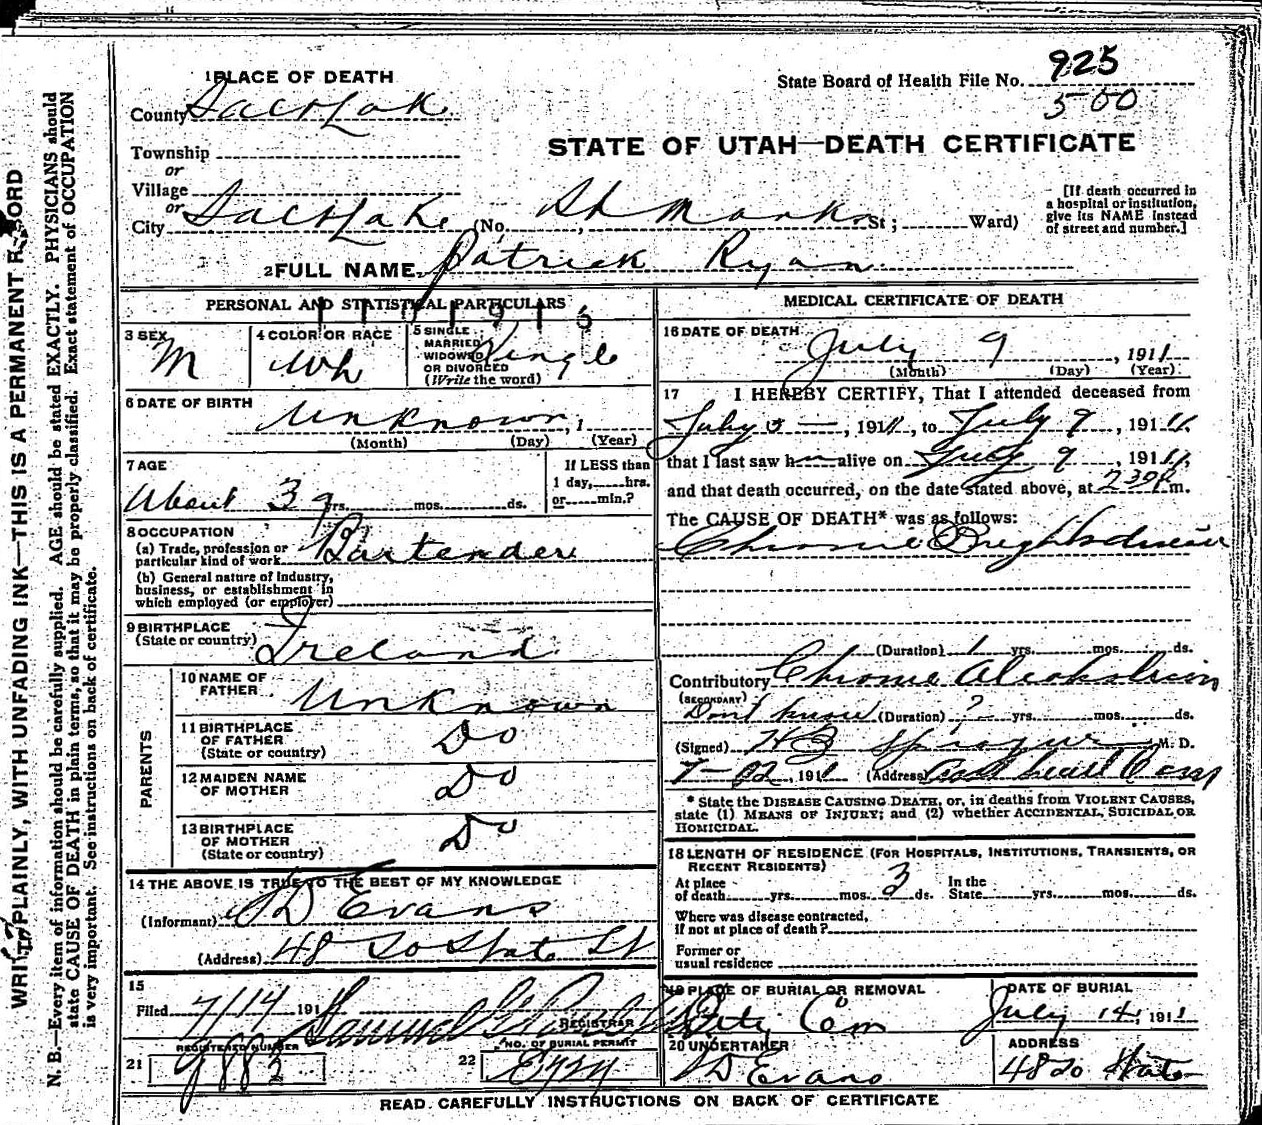 1 PLACE OF DEATH
County Salt Lake
Township
or
Village
or
City Salt Lake (No. St Marks St; Ward)
State Board of Health File No. 925
500
STATE OF UTAH—DEATH CERTIFICATE
[If death occurred in
a hospital or institution,
give its NAME instead
of street and number.]
2 FULL NAME Patrick Ryan
PERSONAL AND STATISTICAL PARTICULARS
3 SEX M
4 COLOR OR RACE Wh
5 SINGLE
MARRIED
WIDOWED
OR DIVORCED
(Write the word) Single
6 DATE OF BIRTH
Unknown, 1
(Month) (Day) (Year)
7 AGE
About 39 yrs. mos. ds.
If LESS than
1 day, hrs.
or min.?
8 OCCUPATION
(a) Trade, profession or
particular kind of work Bartender
(b) General nature of Industry,
business, or establishment in
which employed (or employer)
9 BIRTHPLACE
(State or country) Ireland
PARENTS
10 NAME OF
FATHER Unknown
11 BIRTHPLACE
OF FATHER
(State or country) Do
12 MAIDEN NAME
OF MOTHER Do
13 BIRTHPLACE
OF MOTHER
(State or country) Do
14 THE ABOVE IS TRUE TO THE BEST OF MY KNOWLEDGE
(Informant) S D Evans
(Address) 48 So State St
15
Filed 7/14 191
REGISTRAR
REGISTERED NUMBER
21
NO. OF BURIAL PERMIT
22
MEDICAL CERTIFICATE OF DEATH
16 DATE OF DEATH
July 9, 1911
(Month) (Day) (Year)
17 I HEREBY CERTIFY, That I attended deceased from
July 5, 1911, to July 9, 1911,
that I last saw h alive on July 9, 1911,
and that death occurred, on the date stated above, at 2 30 P m.
The CAUSE OF DEATH* was as follows:
Chronic Brights disease
(Duration) 1 yrs. mos. ds.
Contributory Chronic Alcoholism
(SECONDARY)
Dont know (Duration) ? yrs. mos. ds.
(Signed) H B Sprague M. D.
1911 (Address)
* State the DISEASE CAUSING DEATH, or, in deaths from VIOLENT CAUSES,
state (1) MEANS OF INJURY; and (2) whether ACCIDENTAL, SUICIDAL OR
HOMICIDAL.
18 LENGTH OF RESIDENCE (FOR HOSPITALS, INSTITUTIONS, TRANSIENTS, OR
RECENT RESIDENTS)
At place
of death yrs. mos. 3 ds. In the
State yrs. mos. ds.
Where was disease contracted,
if not at place of death?
Former or
usual residence
19 PLACE OF BURIAL OR REMOVAL
City Cem
DATE OF BURIAL
July 14, 1911
20 UNDERTAKER
S D Evans
ADDRESS
48 So State
READ CAREFULLY INSTRUCTIONS ON BACK OF CERTIFICATE
WRITE PLAINLY, WITH UNFADING INK—THIS IS A PERMANENT RECORD
N. B.—Every item of information should be carefully supplied. AGE should be stated EXACTLY. PHYSICIANS should
state CAUSE OF DEATH in plain terms, so that it may be properly classified. Exact statement of OCCUPATION
is very important. See instructions on back of certificate.